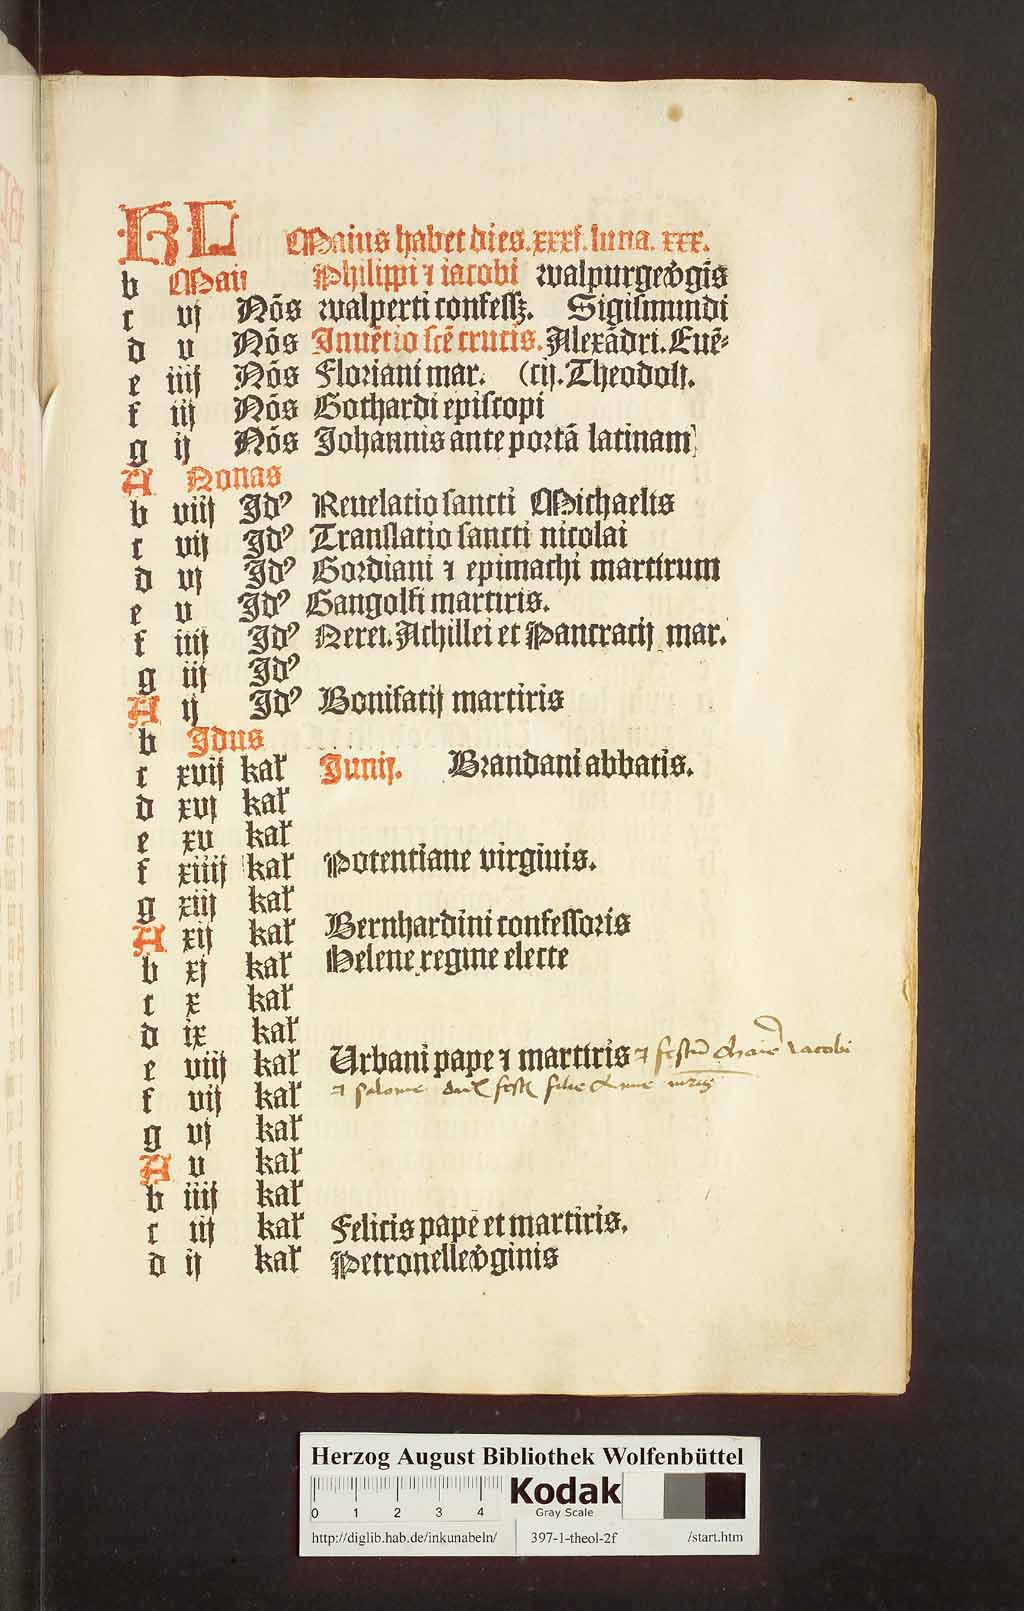 KL Maius habet dies. xxxj. luna. xxx.
b Maii Philippi ⁊ iacobi walpurge v̄gīs
c vj Nōs walperti confessꝫ. Sigismundi
d v Nōs Inuētio scē crucis. Alexādri. Euē⸗
e iiij Nōs Floriani mar. (cij. Theodolj.
f iij Nōs Gothardi episcopi
g ij Nōs Johannis ante portā latinam
A Nonas
b viij Idꝰ Reuelatio sancti Michaelis
c vij Idꝰ Translatio sancti nicolai
d vj Idꝰ Gordiani ⁊ epimachi martirum
e v Idꝰ Gangolfi martiris.
f iiij Idꝰ Nerei. Achillei et Pancracij mar.
g iij Idꝰ
A ij Idꝰ Bonifatij martiris
b Idus
c xvij kaƚ Junij. Brandani abbatis.
d xvj kaƚ
e xv kaƚ
f xiiij kaƚ Potentiane virginis.
g xiij kaƚ
A xij kaƚ Bernhardini confessoris
b xj kaƚ Helene regine electe
c x kaƚ
d ix kaƚ
e viij kaƚ Urbani pape ⁊ martiris ⁊ festū Marie Jacobi
f vij kaƚ ⁊ salome filie Anne
g vj kaƚ
A v kaƚ
b iiij kaƚ
c iij kaƚ Felicis pape et martiris.
d ij kaƚ Petronelle v̄ginis
Herzog August Bibliothek Wolfenbüttel
0 1 2 3 4 Kodak
Gray Scale
http://diglib.hab.de/inkunabeln/ 397-1-theol-2f /start.htm